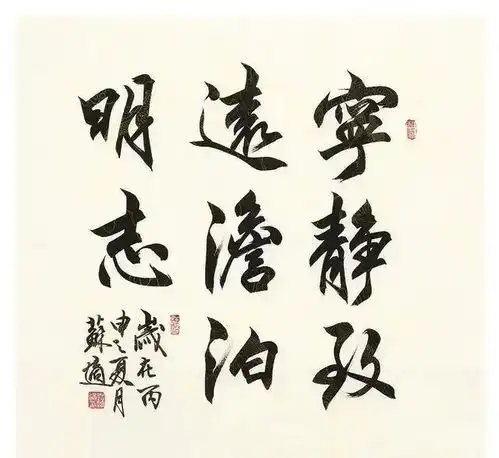 寧静致
遠澹泊
明志
歲在丙
申之夏月
蘇適